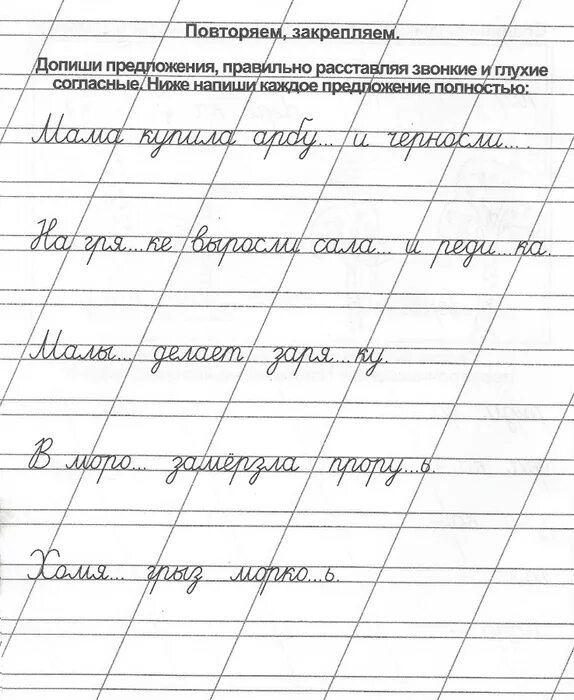 Повторяем, закрепляем.
Допиши предложения, правильно расставляя звонкие и глухие
согласные. Ниже напиши каждое предложение полностью:
Мама купила арбу... и черносли... .
На гря...ке выросли сала... и реди...ка.
Малы... делает заря...ку.
В моро... замёрзла прору...ь.
Хомя... грыз морко...ь.